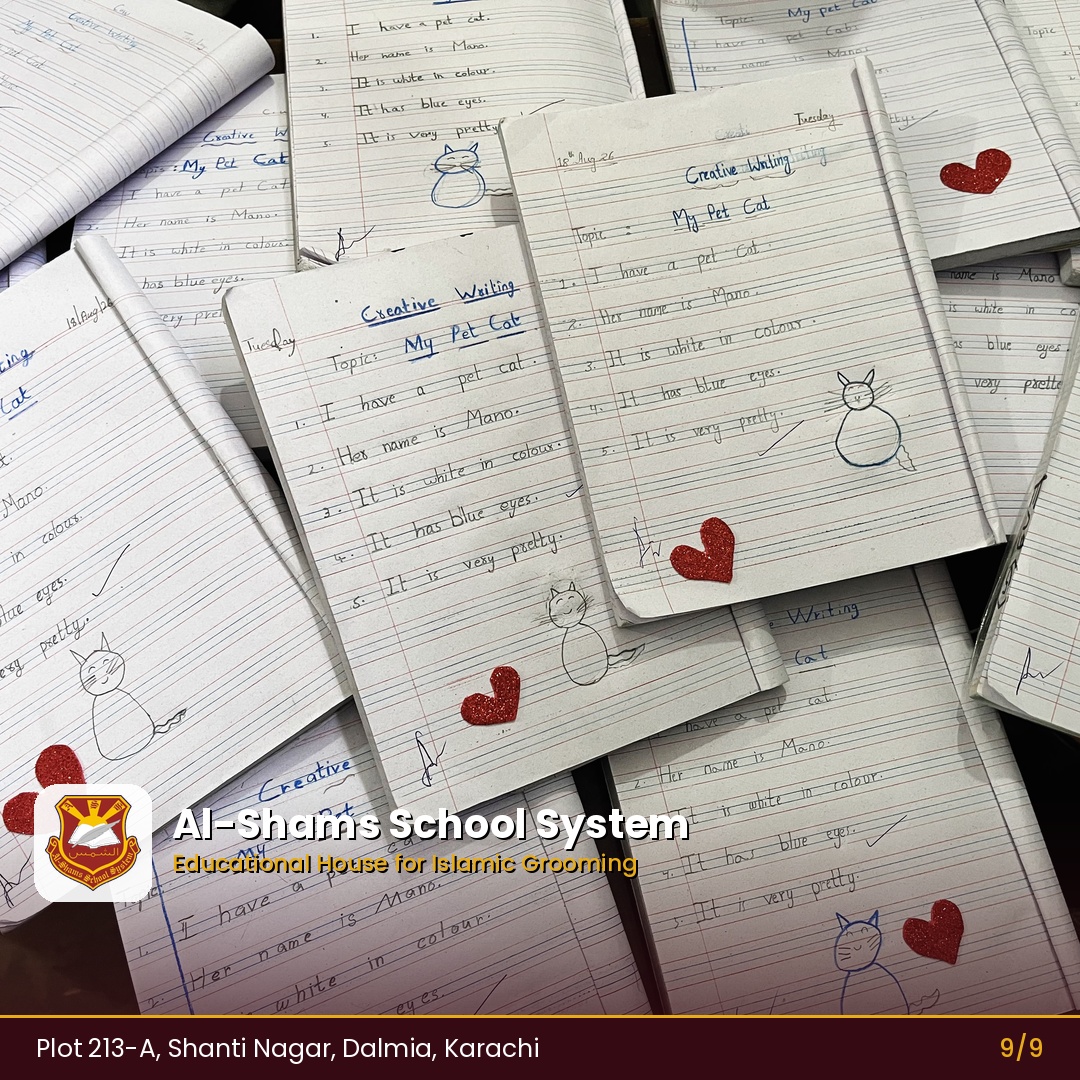 Creative Writing
My Pet Cat
1. I have a pet cat.
2. Her name is Mano.
3. It is white in colour.
4. It has blue eyes.
5. It is very pretty.
Topic: My Pet
I have a pet Cat
Her name is Mano.
Creative W
Topic: My Pet Cat
I have a pet Cat
Her name is Mano.
It is white in colour.
has blue eyes.
Tuesday
18th Aug 26
Creative Writing
Topic : My Pet Cat
1. I have a pet Cat.
2. Her name is Mano.
3. It is white in colour.
4. It has blue eyes.
5. It is very pretty.
name is Mano
is white in co
blue eyes.
very prette
Tuesday
Creative Writing
Topic: My Pet Cat
1. I have a pet cat.
2. Her name is Mano.
3. It is white in colour.
4. It has blue eyes.
5. It is very pretty.
18/Aug/26
ting
Cat
Mano.
in colour.
blue eyes.
very pretty.
Writing
Cat
have a pet cat.
2. Her name is Mano.
is white in colour.
4. It has blue eyes.
5. It is very pretty.
Creative
My Pet
1. I have a pet
2. Her name is Mano.
white in colour.
eyes.
Al-Shams School System
Educational House for Islamic Grooming
Al-Shams School System
Plot 213-A, Shanti Nagar, Dalmia, Karachi
9/9